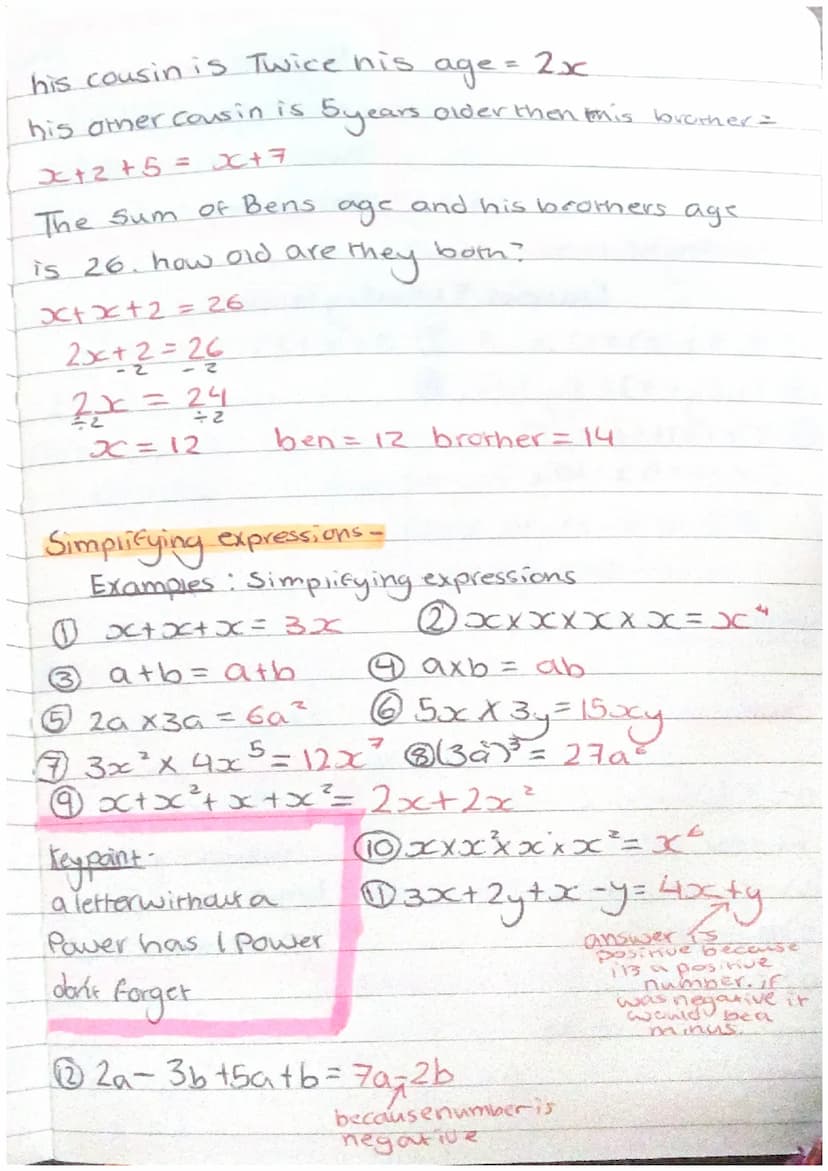 his cousin is Twice his age = 2x
his other cousin is 5 years older then this brother =
x+2+5 = x+7
The Sum of Bens age and his brothers age
is 26. how old are they both?
x+x+2 = 26
2x+2 = 26
-2 -2
2x = 24
÷2 ÷2
x = 12 ben = 12 brother = 14
Simplifying expressions-
Examples : Simplifying expressions
① x+x+x = 3x ② x×x×x×x = x⁴
③ a+b = a+b ④ a×b = ab
⑤ 2a×3a = 6a² ⑥ 5x×3y=15xy
⑦ 3x²×4x⁵=12x⁷ ⑧ (3a)³= 27a
⑨ x+x²+x+x²= 2x+2x²
Key point- ⑩ x×x²×x×x²= x⁶
a letter without a ⑪ 3x+2y+x-y= 4x+y
Power has 1 Power
don't forget
answer is
positive because
its a positive
number. if
was negative it
would be a
minus.
⑫ 2a-3b+5a+b= 7a-2b
because number is
negative